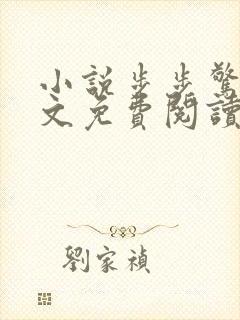 小説步步驚
文免費閱讀
劉家禎